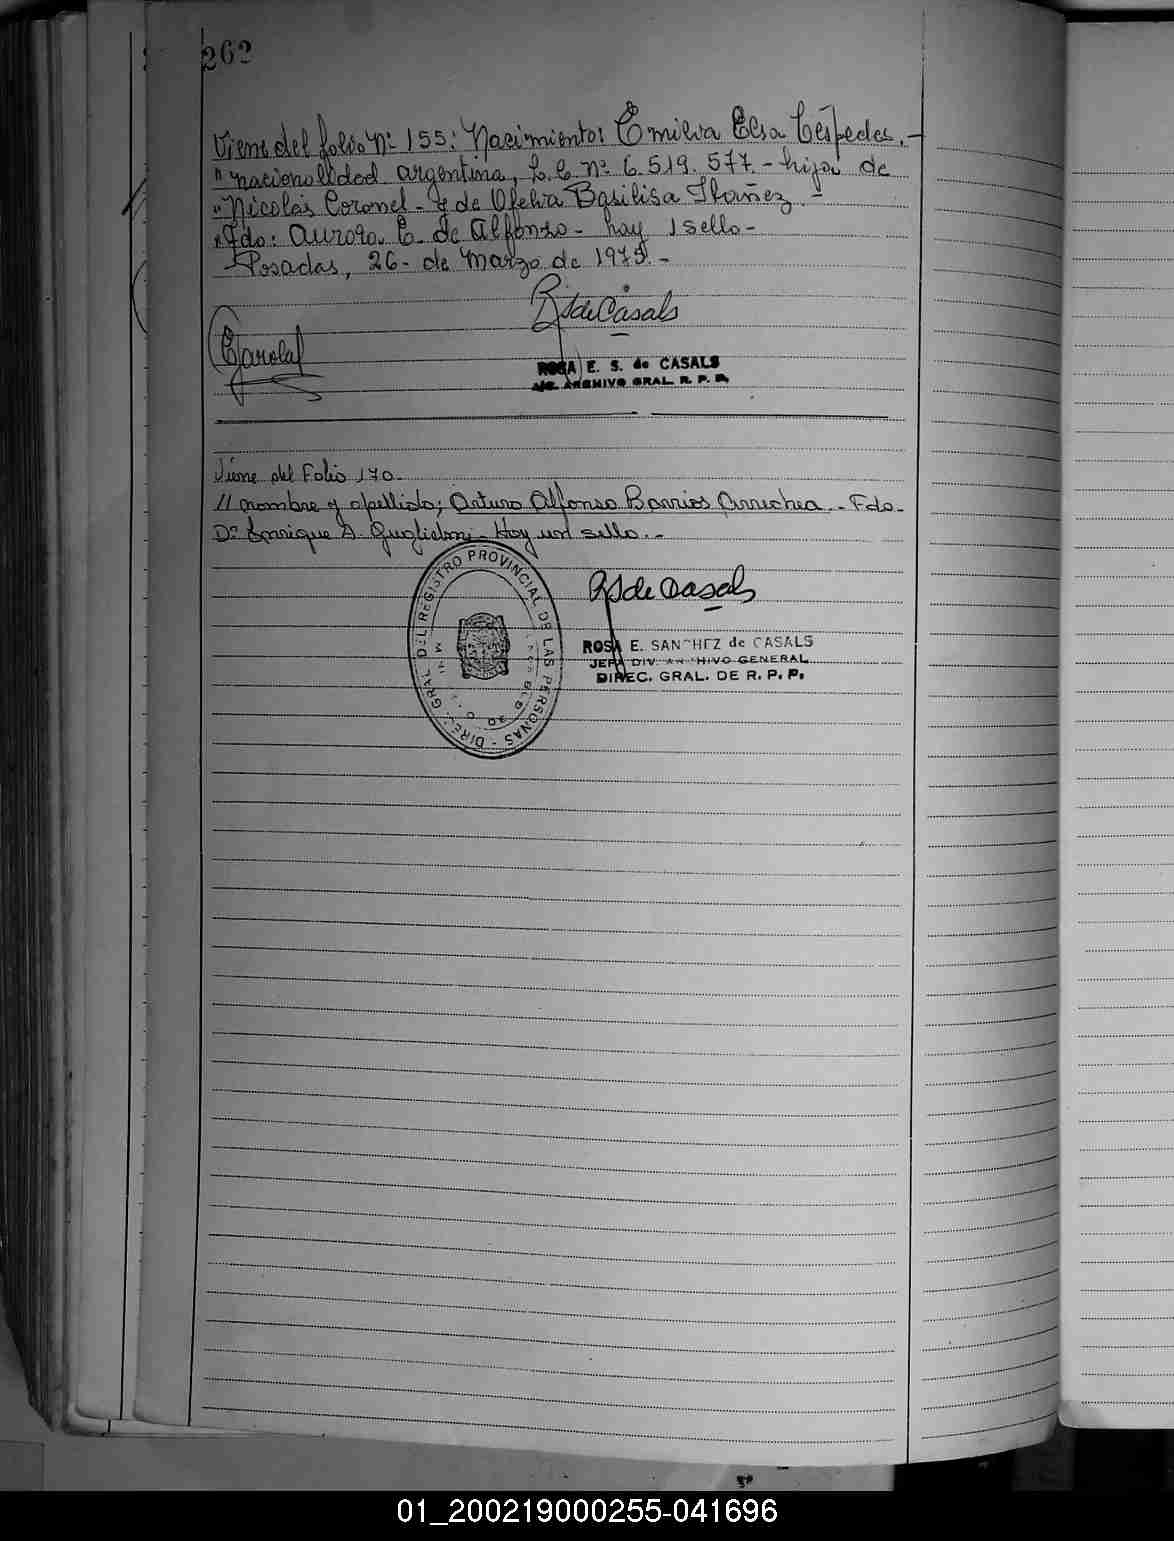 262
Viene del folio Nº 155: Nacimiento: Emilva Elsa Céspedes.-
" nacionalidad argentina, L.C. nº 6.519.577.- hija de
" Nicolás Coronel - y de Ofelia Basilisa Ibañez.-
" Fdo: Aurora C. de Alfonso - hay 1 sello -
- Posadas, 26 - de Marzo de 1975.-
RSdeCasals
ROSA E. S. de CASALS
ARCHIVO GRAL. R. P. P.
Viene del Folio 170.-
// nombre y apellido; Arturo Alfonso Barrios Arrechea.- Fdo.
Dº Enrique A. Guglielmi - Hay un sello.-
DIREC. GRAL. DEL REGISTRO PROVINCIAL DE LAS PERSONAS
RSde Casals
ROSA E. SANCHEZ de CASALS
JEFA DIV. ARCHIVO GENERAL
DIREC. GRAL. DE R. P. P.
01_200219000255-041696